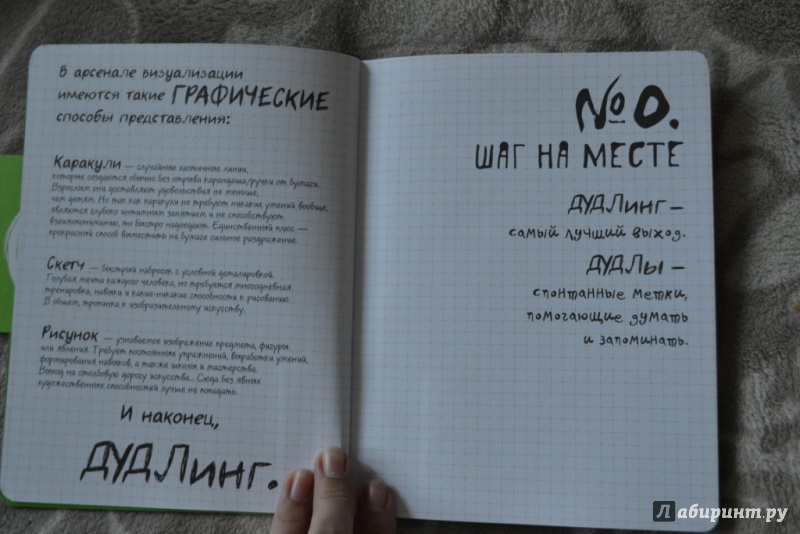 В арсенале визуализации
имеются такие ГРАФИЧЕСКИЕ
способы представления:
Каракули — случайные хаотичные линии,
которые создаются обычно без отрыва карандаша/ручки от бумаги.
Взрослым они доставляют удовольствия не меньше,
чем детям. Но так как каракули не требуют никаких умений вообще,
являются глубоко интимным занятием и не способствуют
взаимопониманию, то быстро надоедают. Единственный плюс —
прекрасный способ выместить на бумаге сильное раздражение.
Скетч — быстрый набросок с условной детализировкой.
Голубая мечта каждого человека, но требуется многодневная
тренировка, навыки и какие-никакие способности к рисованию.
В общем, тропинка к изобразительному искусству.
Рисунок — узнаваемое изображение предмета, фигуры
или явления. Требует постоянных упражнений, выработки умений,
формирования навыков, а также школы и мастерства.
Выход на столбовую дорогу искусства... Сюда без явных
художественных способностей лучше не попадать.
И наконец,
ДУДЛинг.
№0.
ШАГ НА МЕСТЕ
ДУДЛинг —
самый лучший выход.
ДУДЛы —
спонтанные метки,
помогающие думать
и запоминать.
Лабиринт.ру